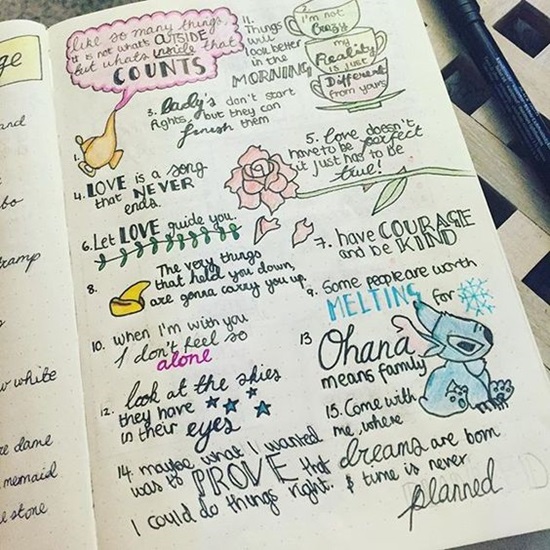 ge
and
bo
ramp
w white
re dame
mermaid
e stone
like so many things,
it is not what's OUTSIDE
but whats inside that
COUNTS
1.
11.
Things
will
look better
in the
MORNING
2. I'm not
crazy
my
Reality
is just
Different
from yours
3. lady's don't start
fights, but they can
finish them
4. LOVE is a song
that NEVER
ends.
5. Love doesn't
have to be perfect
it just has to be
true!
6. Let LOVE guide you.
7. have COURAGE
and be KIND
8.
The very things
that held you down,
are gonna carry you up.
9. Some people are worth
MELTING for
10. when I'm with you
I don't feel so
alone
12. look at the skies
they have
in their eyes
13
Ohana
means family
14. maybe what I wanted
was to PROVE that
I could do things right.
15. Come with
me, where
dreams are born
& time is never
planned